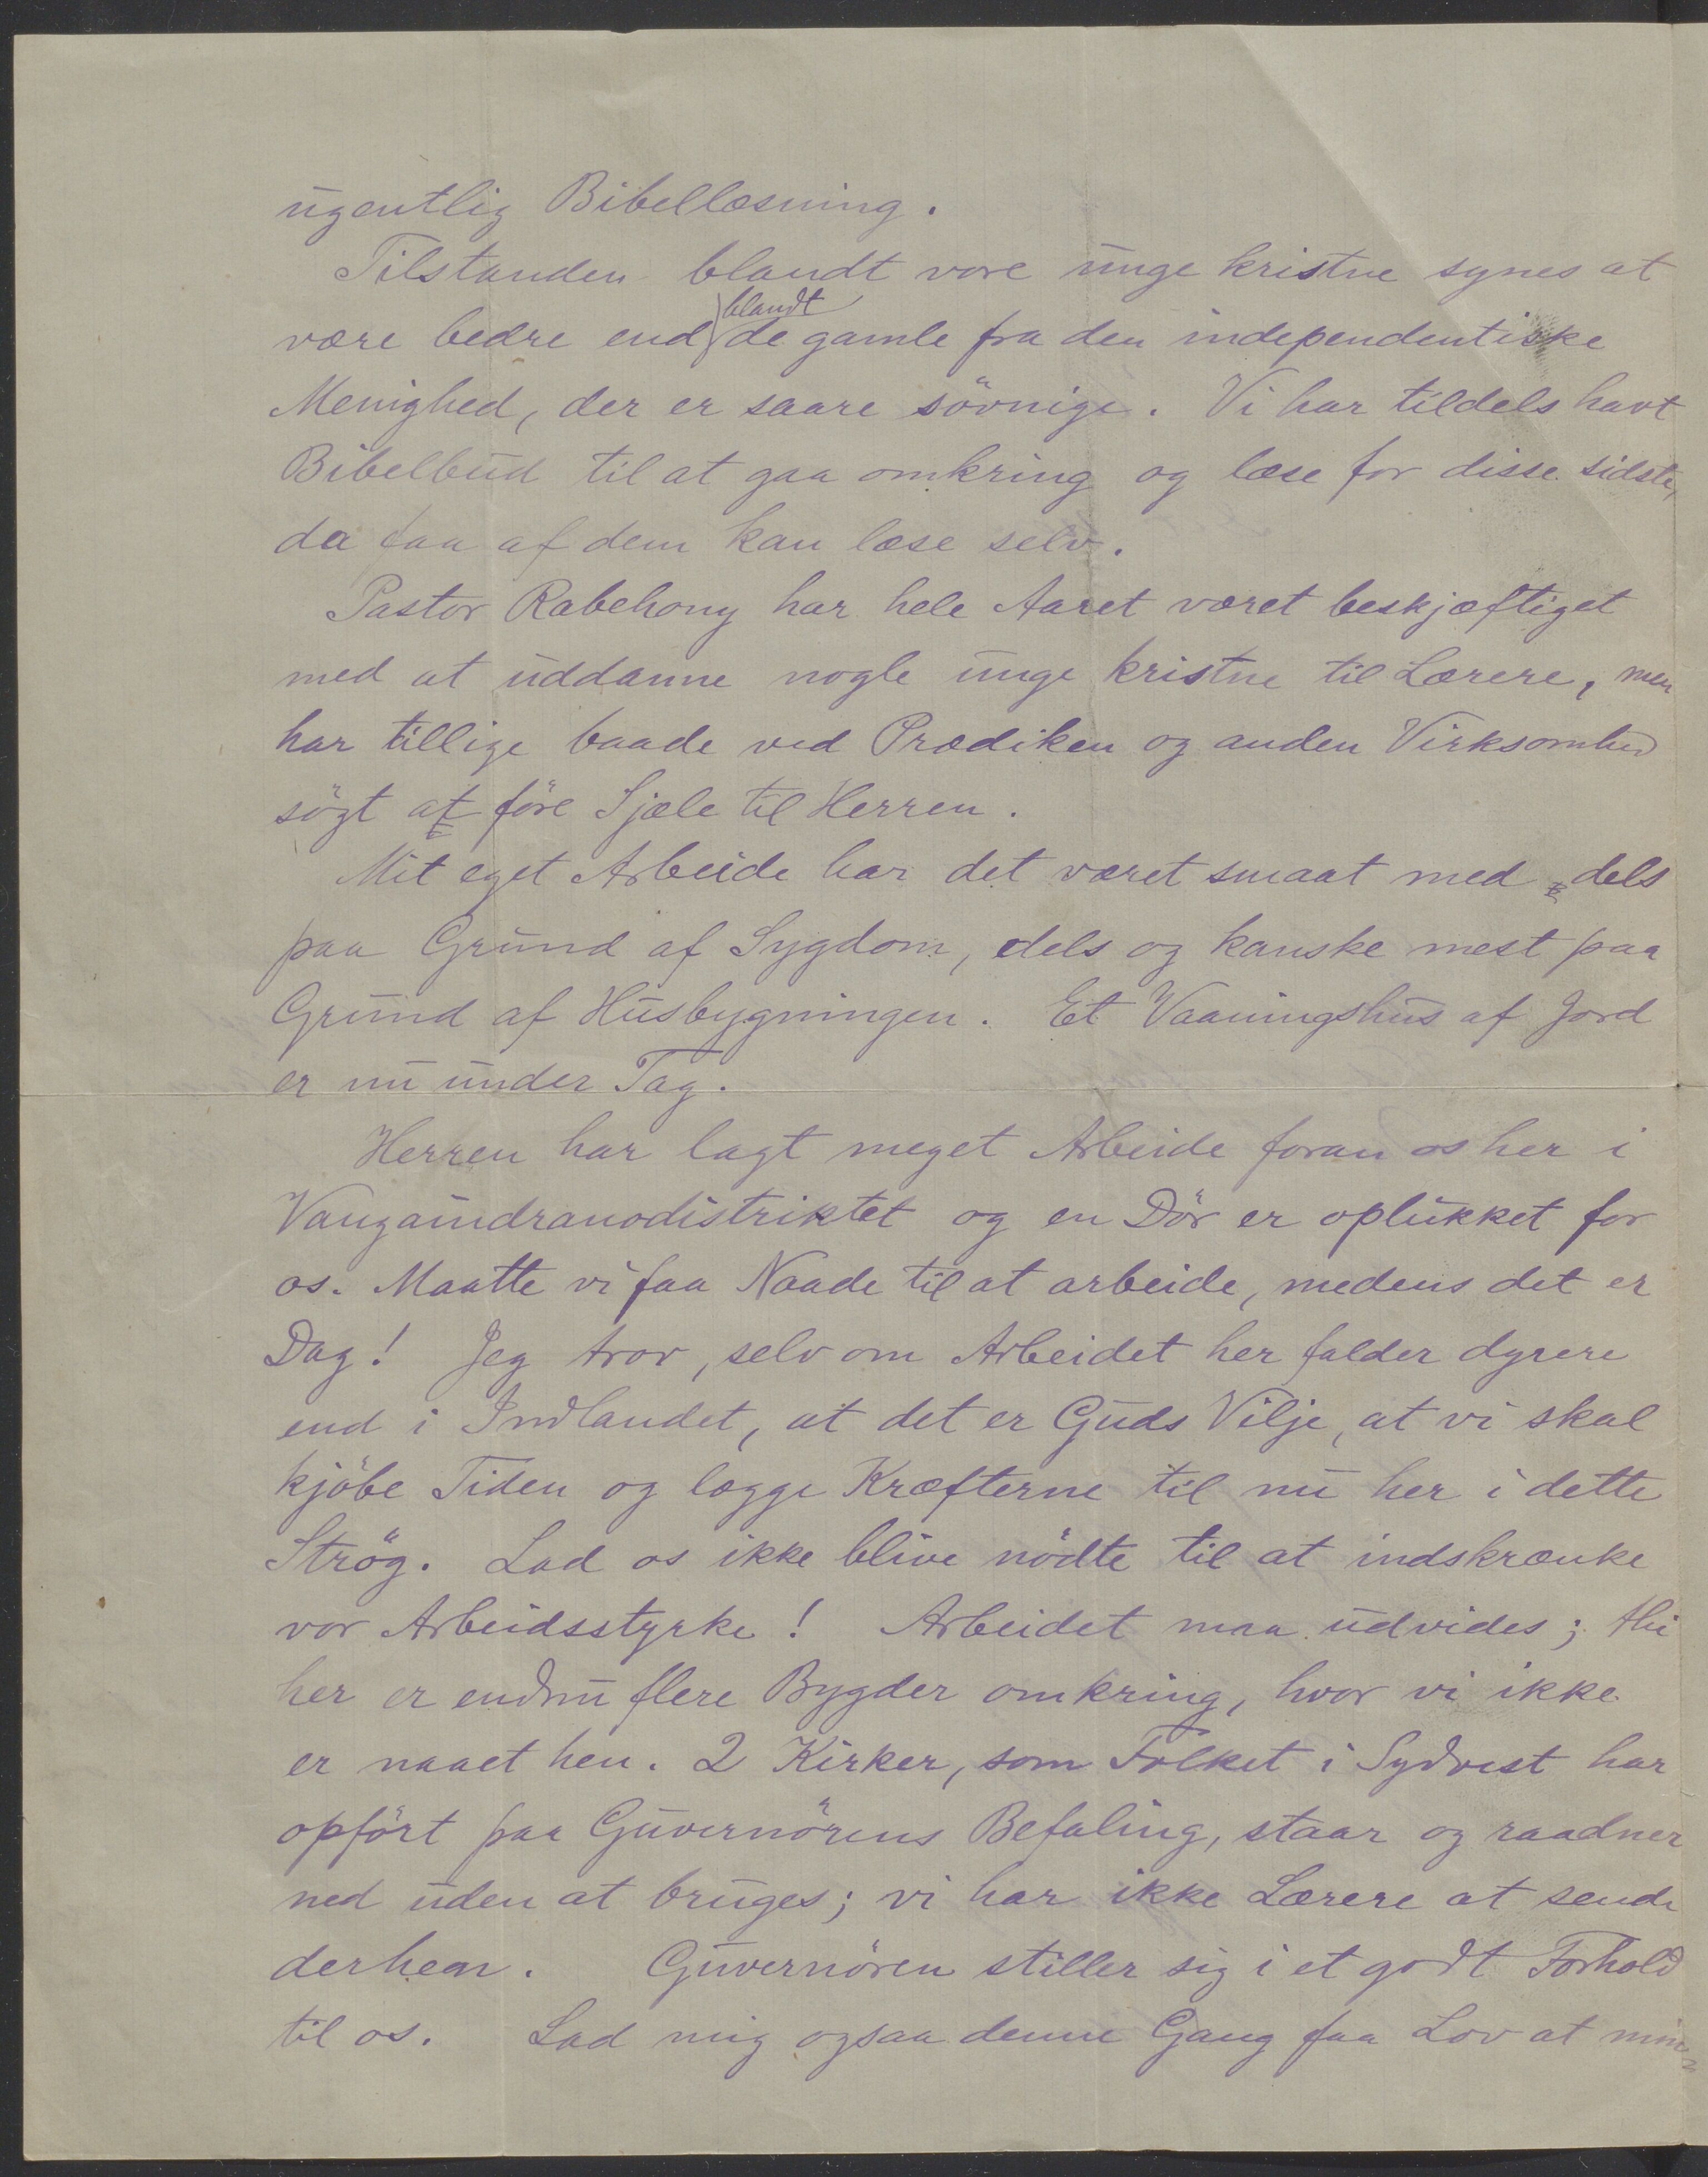 ugentlig Bibellæsning.
Tilstanden blandt vore unge kristne synes at
være bedre end blandt de gamle fra den independentiske
Menighed, der er saare søvnige. Vi har tildels havt
Bibelbud til at gaa omkring og læse for disse sidste,
da faa af dem kan læse selv.
Pastor Rabehony har hele Aaret været beskjæftiget
med at uddanne nogle unge kristne til Lærere, men
har tillige baade ved Prædiken og anden Virksomhed
søgt at føre Sjæle til Herren.
Mit eget Arbeide har det været smaat med dels
paa Grund af Sygdom, dels og kanske mest paa
Grund af Husbygningen. Et Vaaningshus af Jord
er nu under Tag.
Herren har lagt meget Arbeide foran os her i
Vangaindranodistriktet og en Dör er oplukket for
os. Maatte vi faa Naade til at arbeide, medens det er
Dag! Jeg tror, selv om Arbeidet her falder dyrere
end i Indlandet, at det er Guds Vilje, at vi skal
kjöbe Tiden og lægge Kræfterne til nu her i dette
Strög. Lad os ikke blive nödte til at indskrænke
vor Arbeidsstyrke! Arbeidet maa udvides; thi
her er endnu flere Bygder omkring, hvor vi ikke
er naaet hen. 2 Kirker, som Folket i Sydvest har
opfört paa Guvernörens Befaling, staar og raadner
ned uden at bruges; vi har ikke Lærere at sende
derhen. Guvernören stiller sig i et godt Forhold
til os. Lad mig ogsaa denne Gang faa Lov at